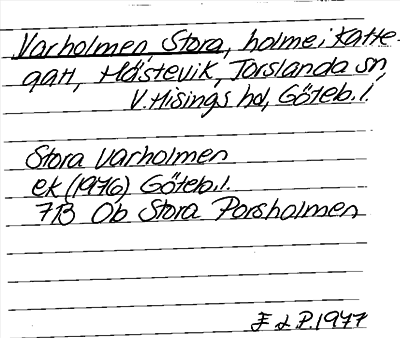 Varholmen, Stora, holme i Katte-
gatt, Hästevik, Torslanda sn,
V. Hisings hd, Göteb. l.
Stora Varholmen
ek (1976) Göteb. l.
7B Ob Stora Porsholmen
F d P. 1977